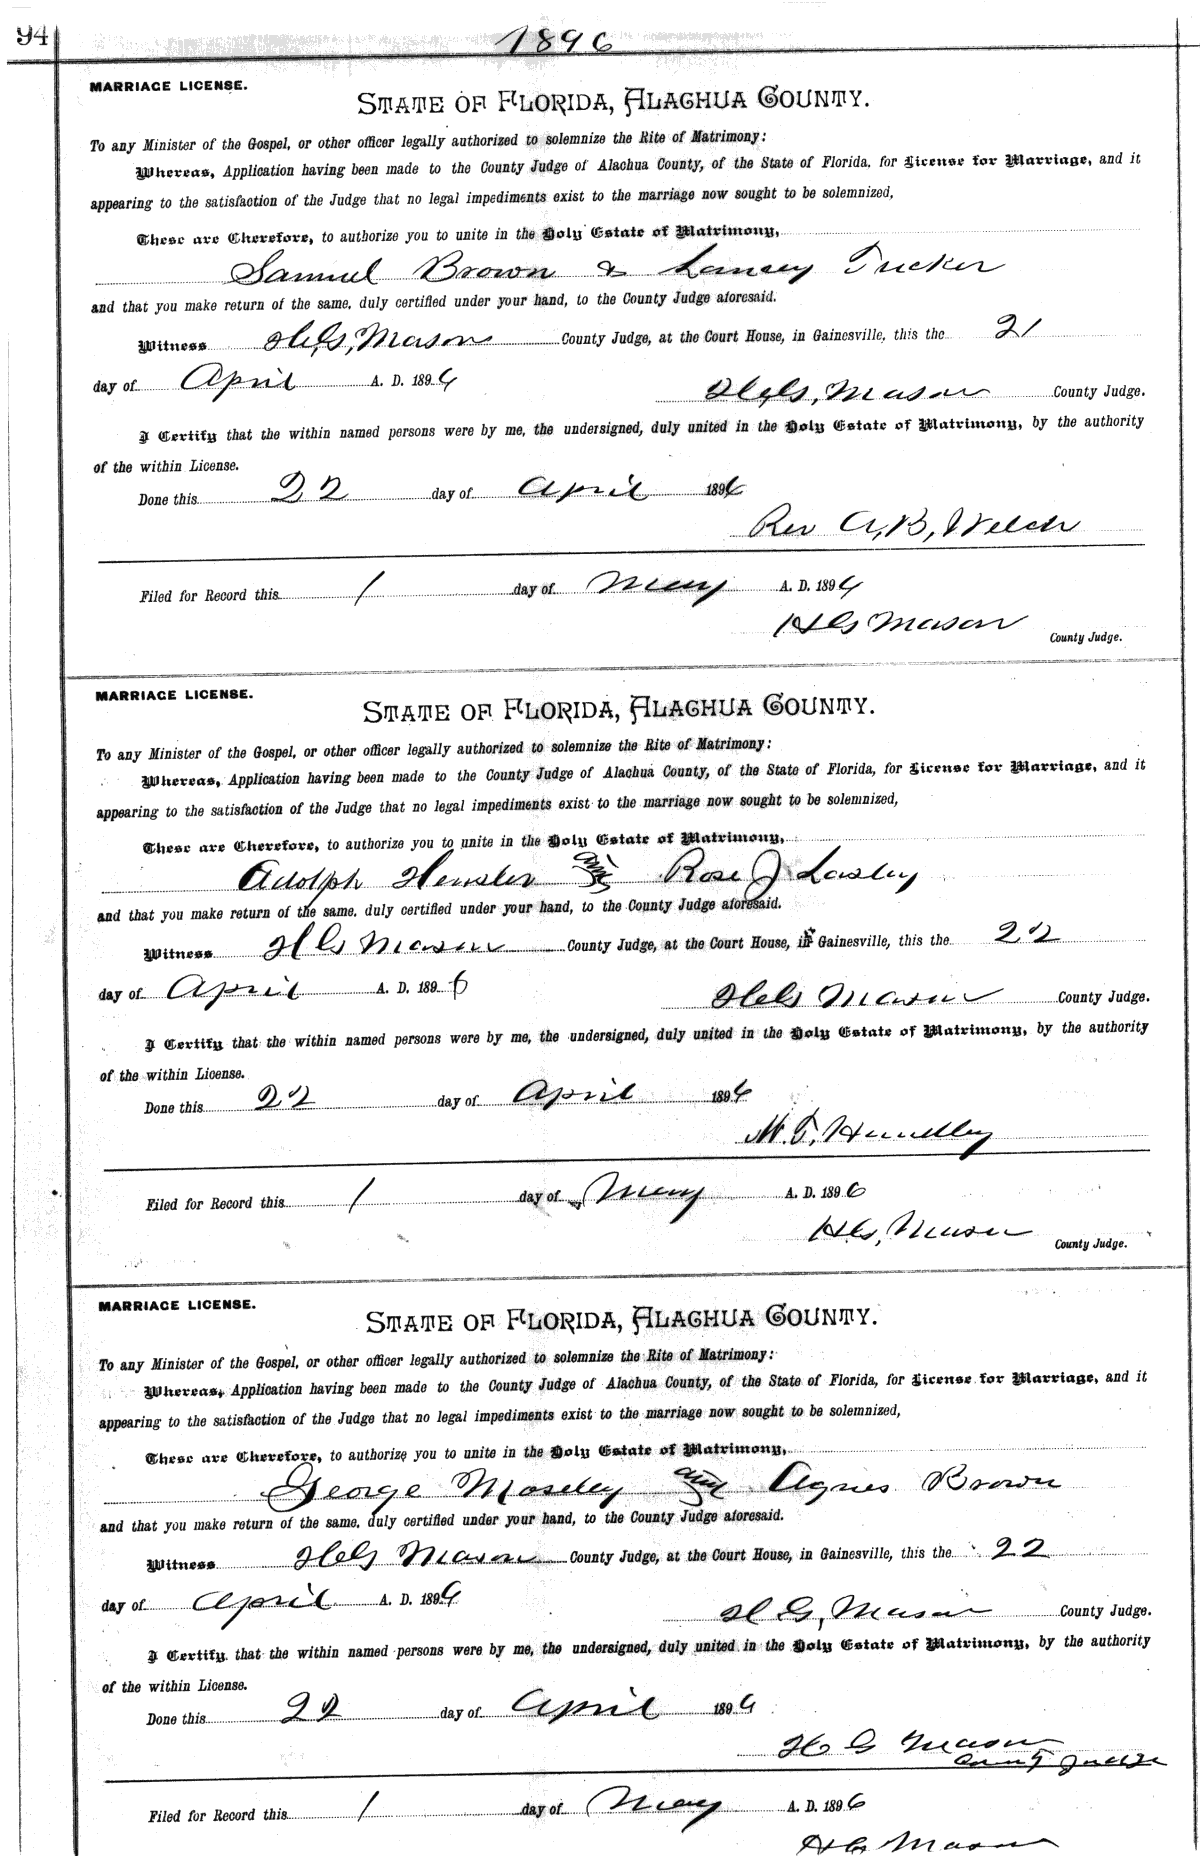 94
1896
MARRIAGE LICENSE.
STATE OF FLORIDA, ALACHUA COUNTY.
To any Minister of the Gospel, or other officer legally authorized to solemnize the Rite of Matrimony:
Whereas, Application having been made to the County Judge of Alachua County, of the State of Florida, for License for Marriage, and it
appearing to the satisfaction of the Judge that no legal impediments exist to the marriage now sought to be solemnized,
These are Therefore, to authorize you to unite in the Holy Estate of Matrimony,
Samuel Brown & Lancey Tucker
and that you make return of the same, duly certified under your hand, to the County Judge aforesaid.
Witness H. G. Mason County Judge, at the Court House, in Gainesville, this the 21
day of April A. D. 1896
H. G. Mason County Judge.
I Certify that the within named persons were by me, the undersigned, duly united in the Holy Estate of Matrimony, by the authority
of the within License.
Done this 22 day of April 1896
Rev A, B, Welch
Filed for Record this 1 day of May A. D. 1896
H G Mason
County Judge.
MARRIAGE LICENSE.
STATE OF FLORIDA, ALACHUA COUNTY.
To any Minister of the Gospel, or other officer legally authorized to solemnize the Rite of Matrimony:
Whereas, Application having been made to the County Judge of Alachua County, of the State of Florida, for License for Marriage, and it
appearing to the satisfaction of the Judge that no legal impediments exist to the marriage now sought to be solemnized,
These are Therefore, to authorize you to unite in the Holy Estate of Matrimony,
Adolph Hensler and Rose J Lasley
and that you make return of the same, duly certified under your hand, to the County Judge aforesaid.
Witness H G Mason County Judge, at the Court House, in Gainesville, this the 22
day of April A. D. 1896
H G Mason County Judge.
I Certify that the within named persons were by me, the undersigned, duly united in the Holy Estate of Matrimony, by the authority
of the within License.
Done this 22 day of April 1896
Filed for Record this 1 day of May A. D. 1896
H G, Mason
County Judge.
MARRIAGE LICENSE.
STATE OF FLORIDA, ALACHUA COUNTY.
To any Minister of the Gospel, or other officer legally authorized to solemnize the Rite of Matrimony:
Whereas, Application having been made to the County Judge of Alachua County, of the State of Florida, for License for Marriage, and it
appearing to the satisfaction of the Judge that no legal impediments exist to the marriage now sought to be solemnized,
These are Therefore, to authorize you to unite in the Holy Estate of Matrimony,
George Moseley and Agnes Brown
and that you make return of the same, duly certified under your hand, to the County Judge aforesaid.
Witness H G Mason County Judge, at the Court House, in Gainesville, this the 22
day of April A. D. 1896
H G, Mason County Judge.
I Certify that the within named persons were by me, the undersigned, duly united in the Holy Estate of Matrimony, by the authority
of the within License.
Done this 22 day of April 1896
H G Mason
County Judge
Filed for Record this 1 day of May A. D. 1896
H G Mason